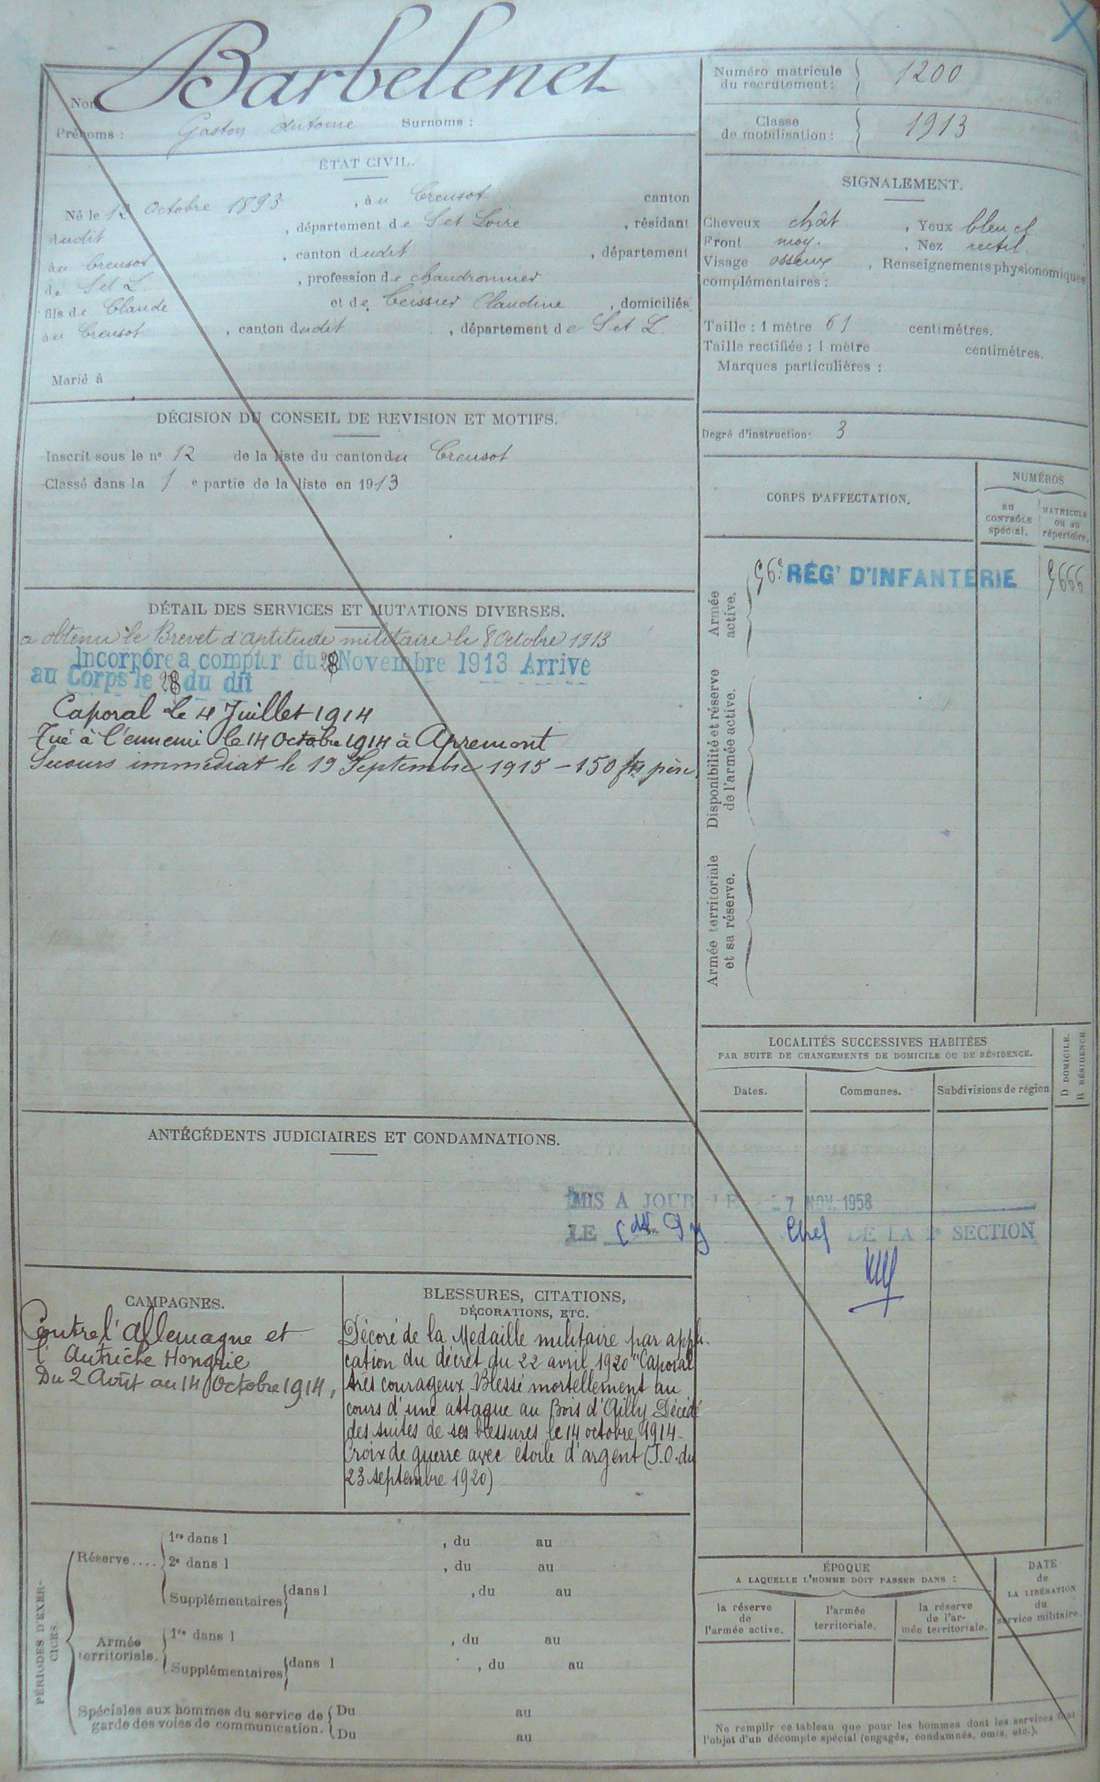 Nom Barbelenet
Prénoms : Gaston Antoine Surnoms :
ÉTAT CIVIL.
Né le Octobre 1893, à au Creusot canton
dudit, département de S et Loire, résidant
au Creusot, canton dudit, département
de S et L, profession de chaudronnier
fils de Claude et de Claudine, domiciliés
au Creusot, canton dudit, département de S et L
Marié à
DÉCISION DU CONSEIL DE REVISION ET MOTIFS.
Inscrit sous le nº 12 de la liste du canton du Creusot
Classé dans la 1 e partie de la liste en 1913
DÉTAIL DES SERVICES ET MUTATIONS DIVERSES.
a obtenu le Brevet d'aptitude militaire le 8 Octobre 1913
Incorporé a compter du 28 Novembre 1913 Arrive
au Corps le 28 du dit
Caporal le 4 Juillet 1914
Tué à l'ennemi le 14 Octobre 1914 à Apremont
Secours immédiat le 19 Septembre 1915 - 150 frs père
ANTÉCÉDENTS JUDICIAIRES ET CONDAMNATIONS.
MIS A JOUR LE 27 NOV. 1958
LE Chef DE LA 2e SECTION
CAMPAGNES.
Contre l'Allemagne et
l'Autriche Hongrie
Du 2 Août au 14 Octobre 1914,
BLESSURES, CITATIONS,
DÉCORATIONS, ETC.
Décoré de la Medaille militaire par appli-
cation du décret du 22 avril 1920 "Caporal
très courageux Blessé mortellement au
cours d'une attaque au Bois d'Ailly Décédé
des suites de ses blessures le 14 octobre 1914-
Croix de guerre avec étoile d'argent (J.O. du
23 septembre 1920)
PÉRIODES D'EXER-
CICES.
Réserve....
1re dans l , du au
2e dans l , du au
Supplémentaires dans l , du au
Armée
territoriale.
1re dans l , du au
Supplémentaires dans l , du au
Spéciales aux hommes du service de
garde des voies de communication.
Du au
Du au
Numéro matricule
du recrutement : 1200
Classe
de mobilisation : 1913
SIGNALEMENT.
Cheveux chât, Yeux bleu cl
Front moy. , Nez rectil
Visage osseux, Renseignements physionomiques
complémentaires :
Taille : 1 mètre 61 centimètres.
Taille rectifiée : 1 mètre centimètres.
Marques particulières :
Degré d'instruction : 3
CORPS D'AFFECTATION.
NUMÉROS
au
CONTRÔLE
spécial.
MATRICULE
ou au
répertoire.
Armée
active.
56e RÉGt D'INFANTERIE 5666
Disponibilité et réserve
de l'armée active.
Armée territoriale
et sa réserve.
LOCALITÉS SUCCESSIVES HABITÉES
PAR SUITE DE CHANGEMENTS DE DOMICILE OU DE RÉSIDENCE.
D DOMICILE.
R RÉSIDENCE
Dates. Communes. Subdivisions de région
ÉPOQUE
A LAQUELLE L'HOMME DOIT PASSER DANS :
la réserve
de
l'armée active.
l'armée
territoriale.
la réserve
de l'ar-
mée territoriale.
DATE
de
LA LIBÉRATION
du
service militaire.
Ne remplir ce tableau que pour les hommes dont les services font
l'objet d'un décompte spécial (engagés, condamnés, omis, etc.).